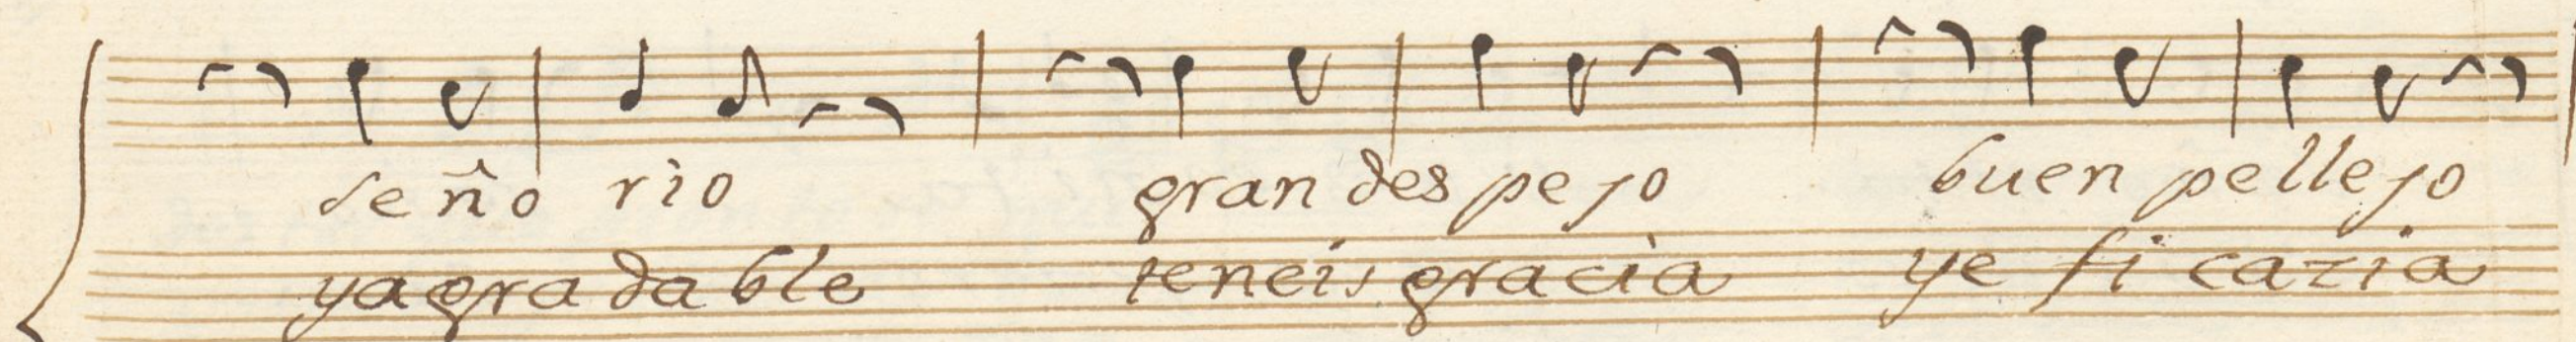 seño rio gran des pejo buen pellejo
ya gra da ble teneis gracia ye fi cazia